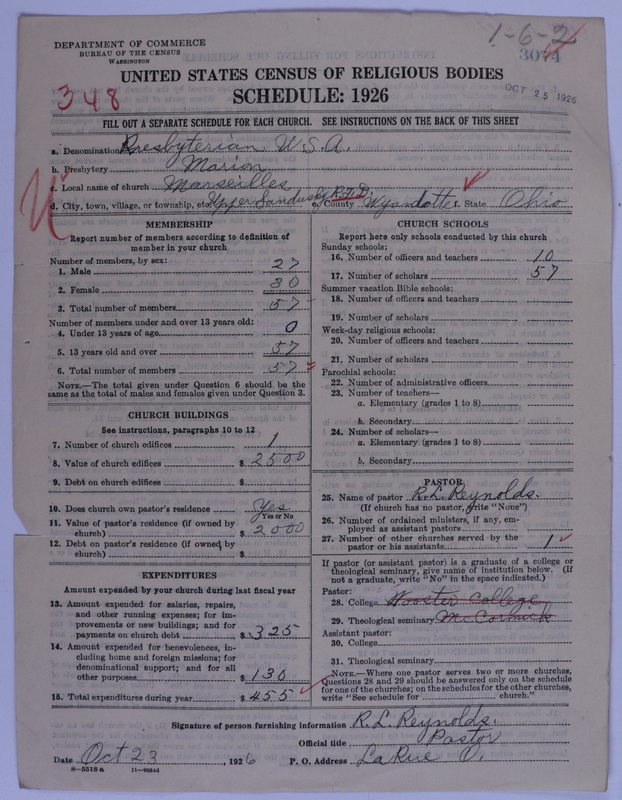 DEPARTMENT OF COMMERCE
BUREAU OF THE CENSUS
WASHINGTON
1-6-2
3074
UNITED STATES CENSUS OF RELIGIOUS BODIES
SCHEDULE: 1926
348
OCT 25 1926
FILL OUT A SEPARATE SCHEDULE FOR EACH CHURCH. SEE INSTRUCTIONS ON THE BACK OF THIS SHEET
a. Denomination Presbyterian U.S.A.
b. Presbytery Marion
c. Local name of church Marseilles
d. City, town, village, or township, etc. Upper Sandusky R.F.D. e. County Wyandotte f. State Ohio
MEMBERSHIP
Report number of members according to definition of
member in your church
Number of members, by sex:
1. Male 27
2. Female 30
3. Total number of members 57
Number of members under and over 13 years old:
4. Under 13 years of age 0
5. 13 years old and over 57
6. Total number of members 57
NOTE.—The total given under Question 6 should be the
same as the total of males and females given under Question 3.
CHURCH BUILDINGS
See instructions, paragraphs 10 to 12
7. Number of church edifices 1
8. Value of church edifices $ 2500
9. Debt on church edifices $
10. Does church own pastor's residence Yes
Yes or No
11. Value of pastor's residence (if owned by
church) $ 2000
12. Debt on pastor's residence (if owned by
church) $
EXPENDITURES
Amount expended by your church during last fiscal year
13. Amount expended for salaries, repairs,
and other running expenses; for im-
provements or new buildings; and for
payments on church debt $ 325
14. Amount expended for benevolences, in-
cluding home and foreign missions; for
denominational support; and for all
other purposes $ 130
15. Total expenditures during year $ 455
CHURCH SCHOOLS
Report here only schools conducted by this church
Sunday schools:
16. Number of officers and teachers 10
17. Number of scholars 57
Summer vacation Bible schools:
18. Number of officers and teachers
19. Number of scholars
Week-day religious schools:
20. Number of officers and teachers
21. Number of scholars
Parochial schools:
22. Number of administrative officers
23. Number of teachers—
a. Elementary (grades 1 to 8)
b. Secondary
24. Number of scholars—
a. Elementary (grades 1 to 8)
b. Secondary
PASTOR
25. Name of pastor R. L. Reynolds.
(If church has no pastor, write "None")
26. Number of ordained ministers, if any, em-
ployed as assistant pastors
27. Number of other churches served by the
pastor or his assistants 1
If pastor (or assistant pastor) is a graduate of a college or
theological seminary, give name of institution below. (If
not a graduate, write "No" in the space indicated.)
Pastor:
28. College Wooster College
29. Theological seminary McCormick
Assistant pastor:
30. College
31. Theological seminary
NOTE.—Where one pastor serves two or more churches,
Questions 28 and 29 should be answered only on the schedule
for one of the churches; on the schedules for the other churches,
write "See schedule for church."
Signature of person furnishing information R. L. Reynolds.
Official title Pastor
Date Oct 23, 1926 P. O. Address LaRue O.
8-5518 a